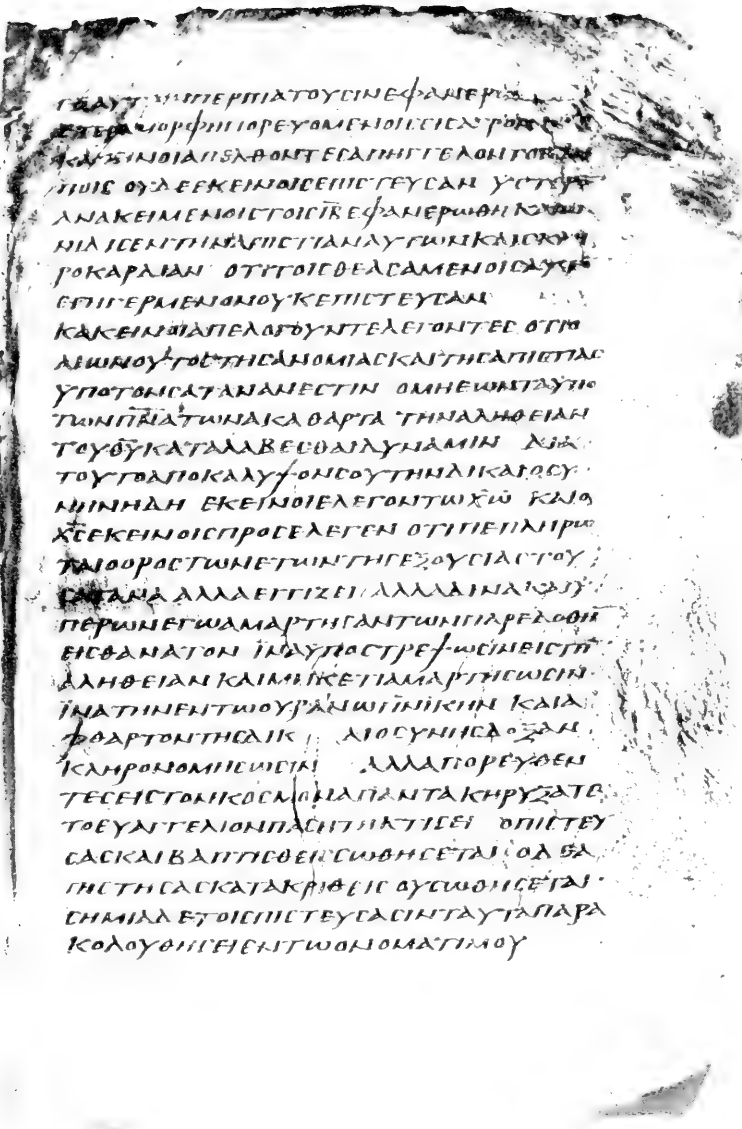 ΑΥΤΩΝΠΕΡΠΙΑΤΟΥϹΙΝΕΦΑΝΕΡΩ
ΕΤΕΡΑΜΟΡΦΗΠΟΡΕΥΟΜΕΝΟΙϹΕΙϹΑΓΡΟΝ
ΚΑΚΕΙΝΟΙΑΠΕΛΘΟΝΤΕϹΑΠΗΓΓΕΛΟΝΤΟΙϹΛΟΙ
ΠΟΙϹ ΟΥΔΕΕΚΕΙΝΟΙϹΕΠΙϹΤΕΥϹΑΝ ΥϹΤΕΡΟ̅
ΑΝΑΚΕΙΜΕΝΟΙϹΤΟΙϹΙ̅Α̅ΕΦΑΝΕΡΩΘΗΚΑΙΩ
ΝΙΔΙϹΕΝΤΗΝΑΠΙϹΤΙΑΝΑΥΤΩΝΚΑΙϹΚΛΗ
ΡΟΚΑΡΔΙΑΝ ΟΤΙΤΟΙϹΘΕΑϹΑΜΕΝΟΙϹΑΥΤΟ̅
ΕΓΗΓΕΡΜΕΝΟΝΟΥΚΕΠΙϹΤΕΥϹΑΝ
ΚΑΚΕΙΝΟΙΑΠΕΛΟΓΟΥΝΤΕΛΕΓΟΝΤΕϹ ΟΤΙΟ
ΑΙΩΝΟΥΤΟϹΤΗϹΑΝΟΜΙΑϹΚΑΙΤΗϹΑΠΙϹΤΙΑϹ
ΥΠΟΤΟΝϹΑΤΑΝΑΝΕϹΤΙΝ ΟΜΗΕΩΝΤΑΥΠΟ
ΤΩΝΠ̅Ν̅ΑΤΩΝΑΚΑΘΑΡΤΑ ΤΗΝΑΛΗΘΕΙΑΝ
ΤΟΥΘ̅Υ̅ΚΑΤΑΛΑΒΕϹΘΑΙΔΥΝΑΜΙΝ ΔΙΑ
ΤΟΥΤΟΑΠΟΚΑΛΥΨΟΝϹΟΥΤΗΝΔΙΚΑΙΟϹΥ
ΝΗΝΗΔΗ ΕΚΕΙΝΟΙΕΛΕΓΟΝΤΩΧ̅Ω̅ ΚΑΙΟ
Χ̅Ϲ̅ΕΚΕΙΝΟΙϹΠΡΟϹΕΛΕΓΕΝ ΟΤΙΠΕΠΛΗΡΩ
ΤΑΙΟΟΡΟϹΤΩΝΕΤΩΝΤΗϹΕΞΟΥϹΙΑϹΤΟΥ
ϹΑΤΑΝΑ ΑΛΛΑΕΓΓΙΖΕΙ ΑΛΛΑΔΙΝΑΚΑΙΥ
ΠΕΡΩΝΕΓΩΑΜΑΡΤΗϹΑΝΤΩΝΠΑΡΕΔΟΘΗ̅
ΕΙϹΘΑΝΑΤΟΝ ΙΝΑΥΠΟϹΤΡΕΨΩϹΙΝΕΙϹΤΗ̅
ΑΛΗΘΕΙΑΝ ΚΑΙΜΗΚΕΤΙΑΜΑΡΤΗϹΩϹΙΝ
ΙΝΑΤΗΝΕΝΤΩΟΥΡΑΝΩΠ̅Ν̅ΙΚΗΝ ΚΑΙΑ
ΦΘΑΡΤΟΝΤΗϹΔΙΚ ΑΙΟϹΥΝΗϹΔΟΞΑΝ
ΚΛΗΡΟΝΟΜΗϹΩϹΙΝ ΑΛΛΑΠΟΡΕΥΘΕΝ
ΤΕϹΕΙϹΤΟΝΚΟϹΜΟΝΑΠΑΝΤΑΚΗΡΥΞΑΤΕ
ΤΟΕΥΑΓΓΕΛΙΟΝΠΑϹΗΤΗΚΤΙϹΕΙ ΟΠΙϹΤΕΥ
ϹΑϹΚΑΙΒΑΠΤΙϹΘΕΙϹϹΩΘΗϹΕΤΑΙ ΟΔΕΑ
ΠΙϹΤΗϹΑϹΚΑΤΑΚΡΙΘΕΙϹ ΟΥϹΩΘΗϹΕΤΑΙ
ϹΗΜΙΑΔΕΤΟΙϹΠΙϹΤΕΥϹΑϹΙΝΤΑΥΤΑΠΑΡΑ
ΚΟΛΟΥΘΗϹΕΙΕΝΤΩΟΝΟΜΑΤΙΜΟΥ